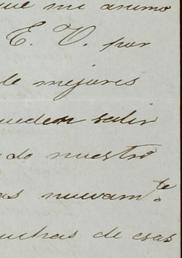 que mi animo
E. V. por
de mejores
pueden salir
do nuestro
as nuevamte.
muchas de esas